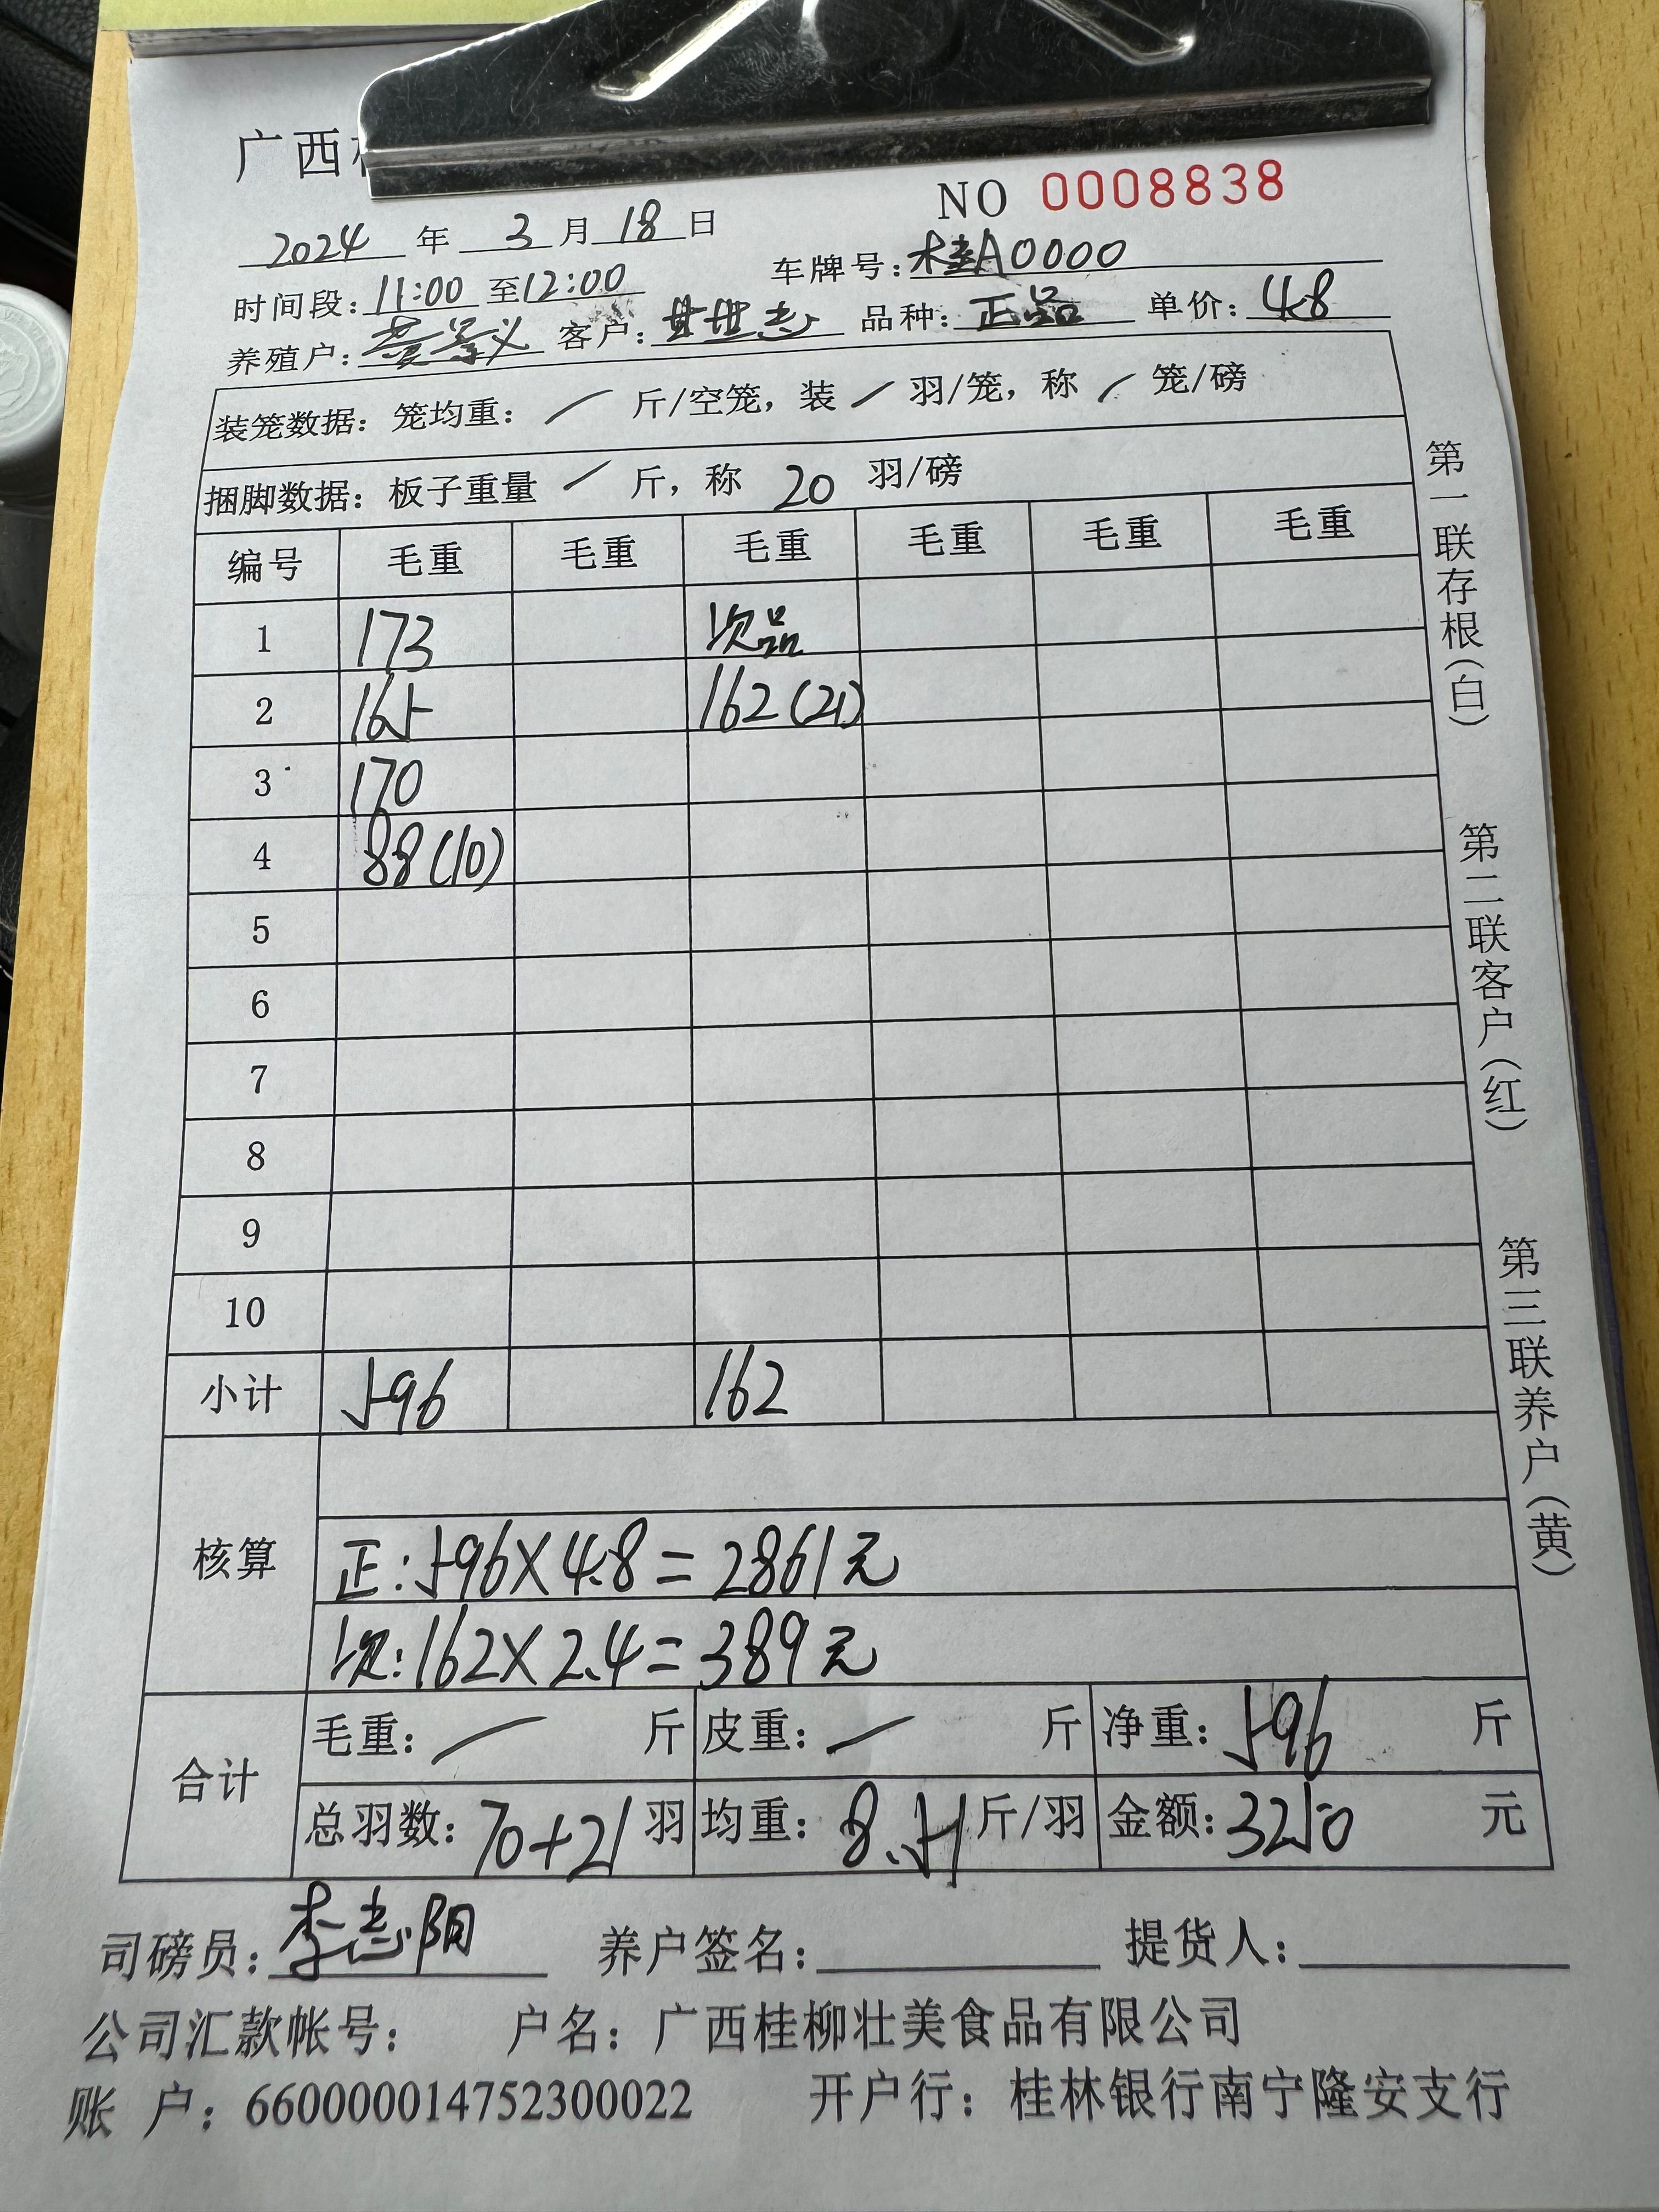 广西
NO 0008838
2024 年 3 月 18 日
时间段: 11:00 至 12:00 车牌号: 桂A0000
养殖户: 义 客户: 甘世志 品种: 正品 单价: 4.8
装笼数据: 笼均重: / 斤/空笼, 装 / 羽/笼, 称 / 笼/磅
捆脚数据: 板子重量 / 斤, 称 20 羽/磅
编号 毛重 毛重 毛重 毛重 毛重 毛重
1 173 次品
2 165 162(21)
3 170
4 88(10)
5
6
7
8
9
10
小计 596 162
核算
正: 596×4.8=2861元
次: 162×2.4=389元
合计
毛重: / 斤 皮重: / 斤 净重: 596 斤
总羽数: 70+21 羽 均重: 8.51 斤/羽 金额: 3250 元
司磅员: 李志阳 养户签名: 提货人:
公司汇款帐号: 户名: 广西桂柳壮美食品有限公司
账 户: 660000014752300022 开户行: 桂林银行南宁隆安支行
第一联存根(白)
第二联客户(红)
第三联养户(黄)